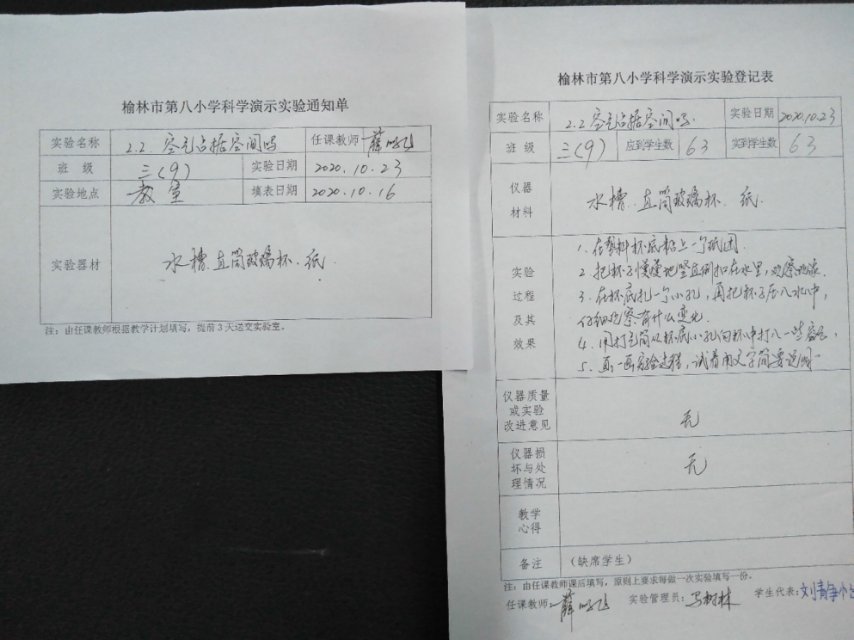 榆林市第八小学科学演示实验通知单
实验名称 2.2. 空气占据空间吗 任课教师 薛
班 级 三(9) 实验日期 2020.10.23
实验地点 教室 填表日期 2020.10.16
实验器材 水槽.直筒玻璃杯.纸.
注：由任课教师根据教学计划填写，提前3天送交实验室。
榆林市第八小学科学演示实验登记表
实验名称 2.2空气占据空间吗. 实验日期 2020.10.23
班 级 三(9) 应到学生数 63 实到学生数 63
仪器
材料
水槽.直筒玻璃杯.纸.
实验
过程
及其
效果
1.在塑料杯底粘上一个纸团.
2.把杯子慢慢地竖直倒扣在水里,观察现象.
3.在杯底扎一个小孔,再把杯子压入水中,
仔细观察有什么变化.
4.用打气筒从杯底小孔向杯中打入一些空气
5.画一画实验过程,试着用文字简要说明
仪器质量
或实验
改进意见
无
仪器损
坏与处
理情况
无
教学
心得
备注 （缺席学生）
注：由任课教师课后填写，原则上要求每做一次实验填写一份。
任课教师: 薛 实验管理员: 马树林 学生代表: 刘静